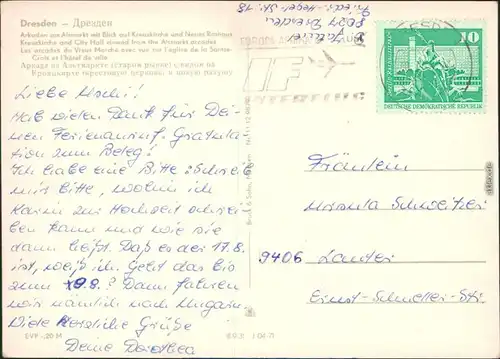 Dresden – Дрезден
Arkaden am Altmarkt mit Blick auf Kreuzkirche und Neues Rathaus
Kreuzkirche and City Hall viewed from the Altmarkt arcades
Les arcades du Vieux Marché avec vue sur l'église de la Sainte-
Croix et l'hôtel de ville
8027 Dresden
INTERFLUG
10
DEUTSCHE DEMOKRATISCHE REPUBLIK
Liebe Uschi!
Hab vielen Dank für Dei-
nen Ferienanruf. Gratula-
tion zum Beleg!
Ich habe eine Bitte: Schreib
mir bitte, wohin ich
Karin zur Hochzeit schrei-
ben kann und wie sie
dann heißt. Daß es der 17.8.
ist, weiß ich. Geht das bis
zum 9.8.? Dann fahren
wir nämlich nach Ungarn.
Viele herzliche Grüße
Deine Dorothea
Fräulein
Ursula Schweitzer
9406 Lauter
Ernst-Schneller-Str.
EVP -,20 M